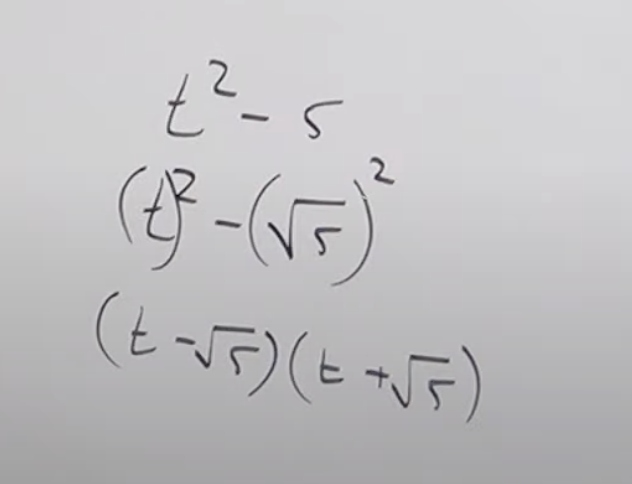 t² - 5
(t)² - (√5)²
(t - √5)(t + √5)